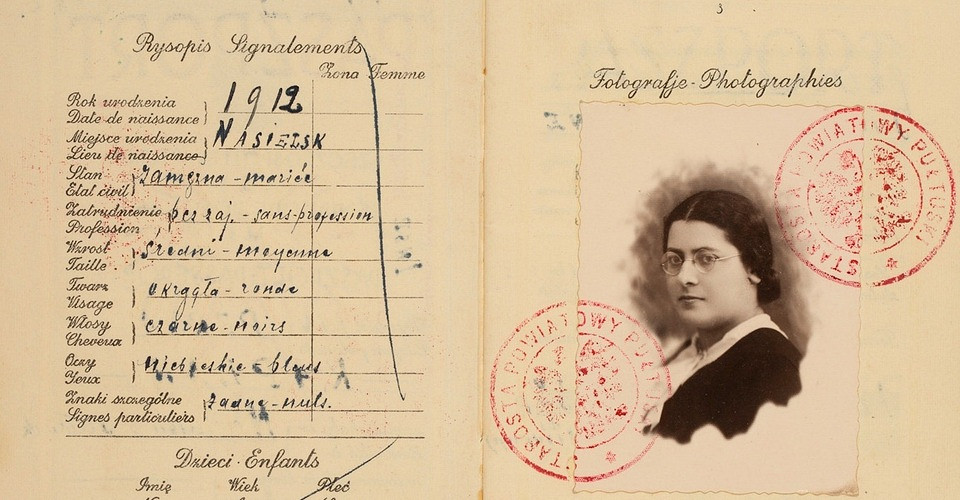 Rysopis Signalements
Żona Femme
Rok urodzenia
Date de naissance
1912
Miejsce urodzenia
Lieu de naissance
NASIELSK
Stan
Etat civil
Zamężna - mariée
Zatrudnienie
Profession
bez zaj. - sans-profession
Wzrost
Taille
Średni - moyenne
Twarz
Visage
okrągła - ronde
Włosy
Cheveux
czarne - noirs
Oczy
Yeux
niebieskie - bleus
Znaki szczególne
Signes particuliers
żadne - nuls.
Dzieci - Enfants
Imię Wiek Płeć
3
Fotografje - Photographies
STAROSTA POWIATOWY PUŁTUSKI
STAROSTA POWIATOWY PU